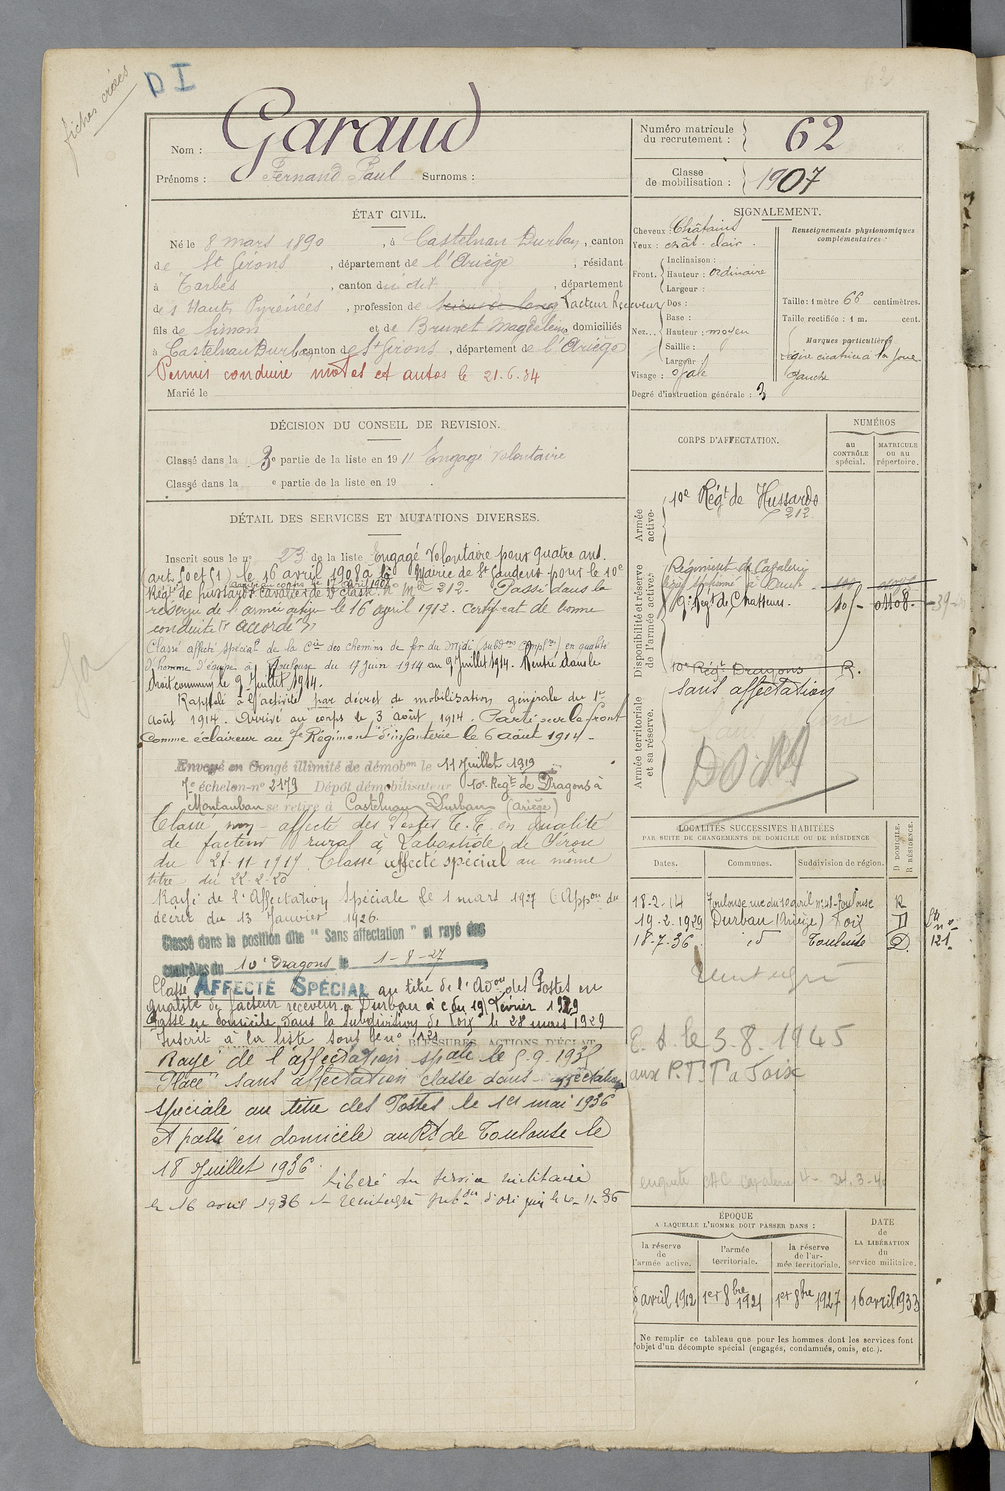 fiches créées
DI
Nom : Garaud
Prénoms : Fernand Paul Surnoms :
Numéro matricule du recrutement : 62
Classe de mobilisation : 1907
ÉTAT CIVIL.
Né le 8 mars 1890, à Castelnau Durban, canton
de St Girons, département de l'Ariège, résidant
à Tarbes, canton du dit, département
des Hautes Pyrénées, profession de Facteur Receveur
fils de Simon et de Brunet Magdeleine domiciliés
à Castelnau Durban canton de St Girons, département de l'Ariège
Permis conduire motos et autos le 21.6.34
Marié le
SIGNALEMENT.
Cheveux : Châtains
Yeux : chât. clair.
Front. Inclinaison :
Hauteur : ordinaire
Largeur :
Nez. Dos :
Base :
Hauteur : moyen
Saillie :
Largeur :
Visage : ovale
Renseignements physionomiques complémentaires :
Taille : 1 mètre 66 centimètres.
Taille rectifiée : 1 m. cent.
Marques particulières
légère cicatrice à la joue
gauche
Degré d'instruction générale : 3
DÉCISION DU CONSEIL DE REVISION.
Classé dans la 3e partie de la liste en 1911 Engagé volontaire
Classé dans la e partie de la liste en 19 .
DÉTAIL DES SERVICES ET MUTATIONS DIVERSES.
Inscrit sous le no 23 de la liste Engagé Volontaire pour quatre ans.
(art. 50 et 51) le 16 avril 1908 à la Mairie de St Gaudens pour le 10e
Régt de hussards cavalier de 2e classe No Mle 212. Passé dans la
réserve de l'armée active le 16 avril 1912. Certificat de bonne
conduite "accordé"
Classé affecté spécial de la Cie des chemins de fer du Midi (subdons complres) en qualité
d'homme d'équipe à Toulouse du 17 juin 1914 au 9 juillet 1914. Rentré dans le
droit commun le 9 juillet 1914.
Rappelé à l'activité par décret de mobilisation générale du 1er
Août 1914. Arrivé au corps le 3 août 1914. Parti sur le front
comme éclaireur au 7e Régiment d'infanterie le 6 août 1914.
Envoyé en Congé illimité de démobon le 11 Juillet 1919
7e échelon no 2179 Dépôt démobilisateur 10e Regt de Dragons à
Montauban se retire à Castelnau Durban (Ariège)
Classé non-affecté des Postes T.T. en qualité
de facteur rural à Labastide de Sérou
du 21.11.1919. Classé affecté spécial au même
titre du 22-2-20
Rayé de l'Affectation Spéciale le 1 mars 1927 (Appon du
décret du 13 Janvier 1926.
Classé dans la position dite "Sans affectation" et rayé des
contrôles du 10e Dragons le 1-8-27
Classé AFFECTÉ SPÉCIAL au titre de l'Adon des Postes en
qualité de facteur receveur à Durban à c. du 19 Février 1929
Passé en domicile dans la subdivision de Foix le 28 mars 1929
Inscrit à la liste sous le no 121
BLESSURES, ACTIONS D'ÉCLAT
Rayé de l'affectation spéale le 5.9.1935
Placé sans affectation classé dans affectation
spéciale au titre des Postes le 1er mai 1936
et passé en domicile au Rt de Toulouse le
18 Juillet 1936.
Libéré du service militaire
le 16 avril 1936 et réintégré subdon d'ori
CORPS D'AFFECTATION.
NUMÉROS
au CONTRÔLE spécial.
MATRICULE ou au répertoire.
Armée active.
10e Régt de Hussards
212
Disponibilité et réserve de l'armée active.
Régiment de Cavalerie
9e Régt de Chasseurs. 105 01108
Armée territoriale et sa réserve.
10e Régt Dragons R.
Sans affectation
LOCALITÉS SUCCESSIVES HABITÉES
PAR SUITE DE CHANGEMENTS DE DOMICILE OU DE RÉSIDENCE
Dates. Communes. Subdivision de région. D DOMICILE. R RÉSIDENCE.
18-2-14 Toulouse rue du 10 avril no 28 Toulouse R
19-2-1929 Durban (Ariège) Foix D
18-7-36 id Toulouse D
no 121
réintégré
E. S. le 3-8.1945
aux P.T.T. à Foix
ÉPOQUE
A LAQUELLE L'HOMME DOIT PASSER DANS :
la réserve de l'armée active.
l'armée territoriale.
la réserve de l'armée territoriale.
DATE DE LA LIBÉRATION du service militaire.
avril 1912 1er 8bre 1921 1er 8bre 1927 16 avril 1933
Ne remplir ce tableau que pour les hommes dont les services font
l'objet d'un décompte spécial (engagés, condamnés, omis, etc.).